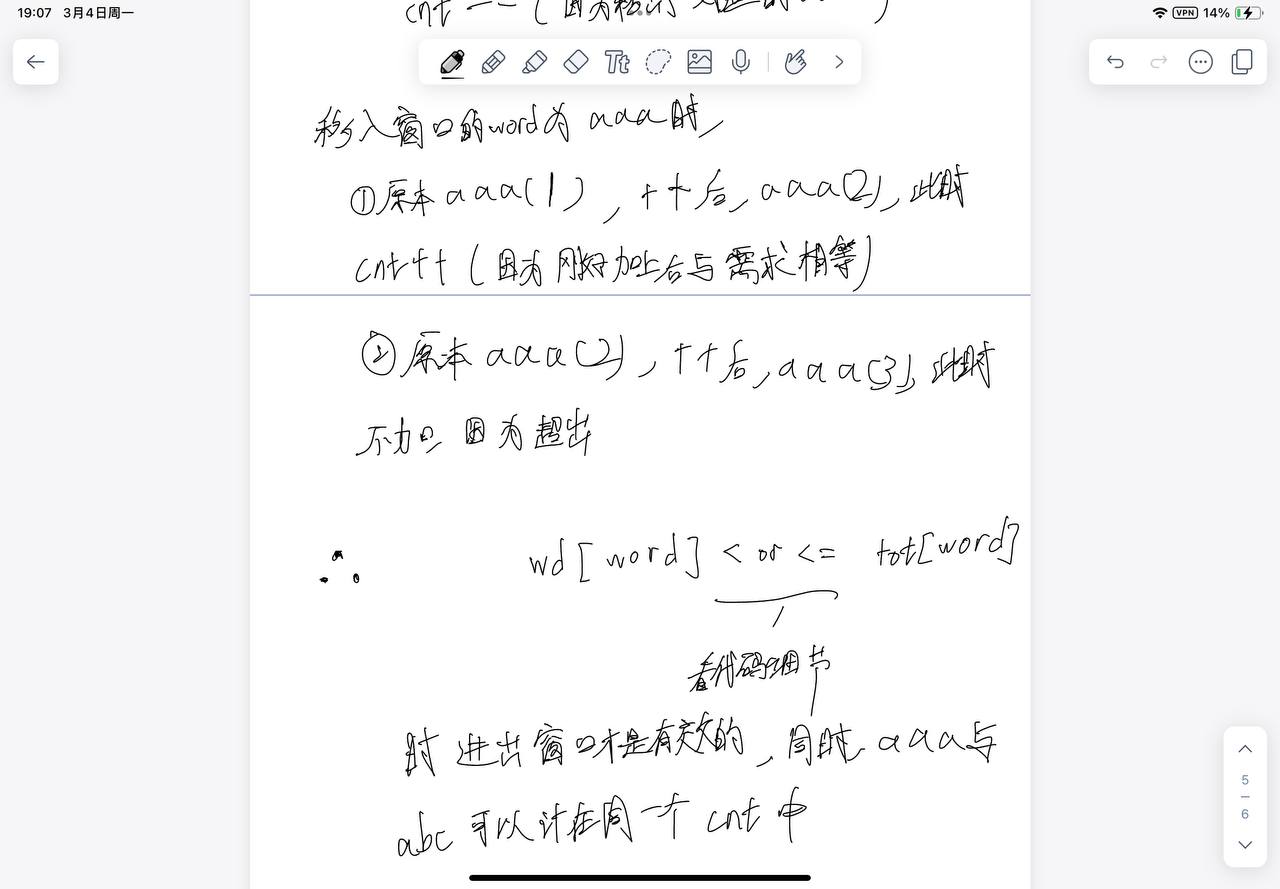 19:07 3月4日周一
VPN 14%
cnt -- (因为
Tt
移入窗口的word为 aaa时,
①原本aaa(1), ++后, aaa(2), 此时
cnt++ (因为刚好加上后与需求相等)
②原本aaa(2), ++后, aaa(3), 此时
不加 因为超出
∴ wd[word] < or <= tot[word]
看代码细节
时进出窗口才是有效的, 同时, aaa与
abc 可以计在同一个 cnt 中
5
6